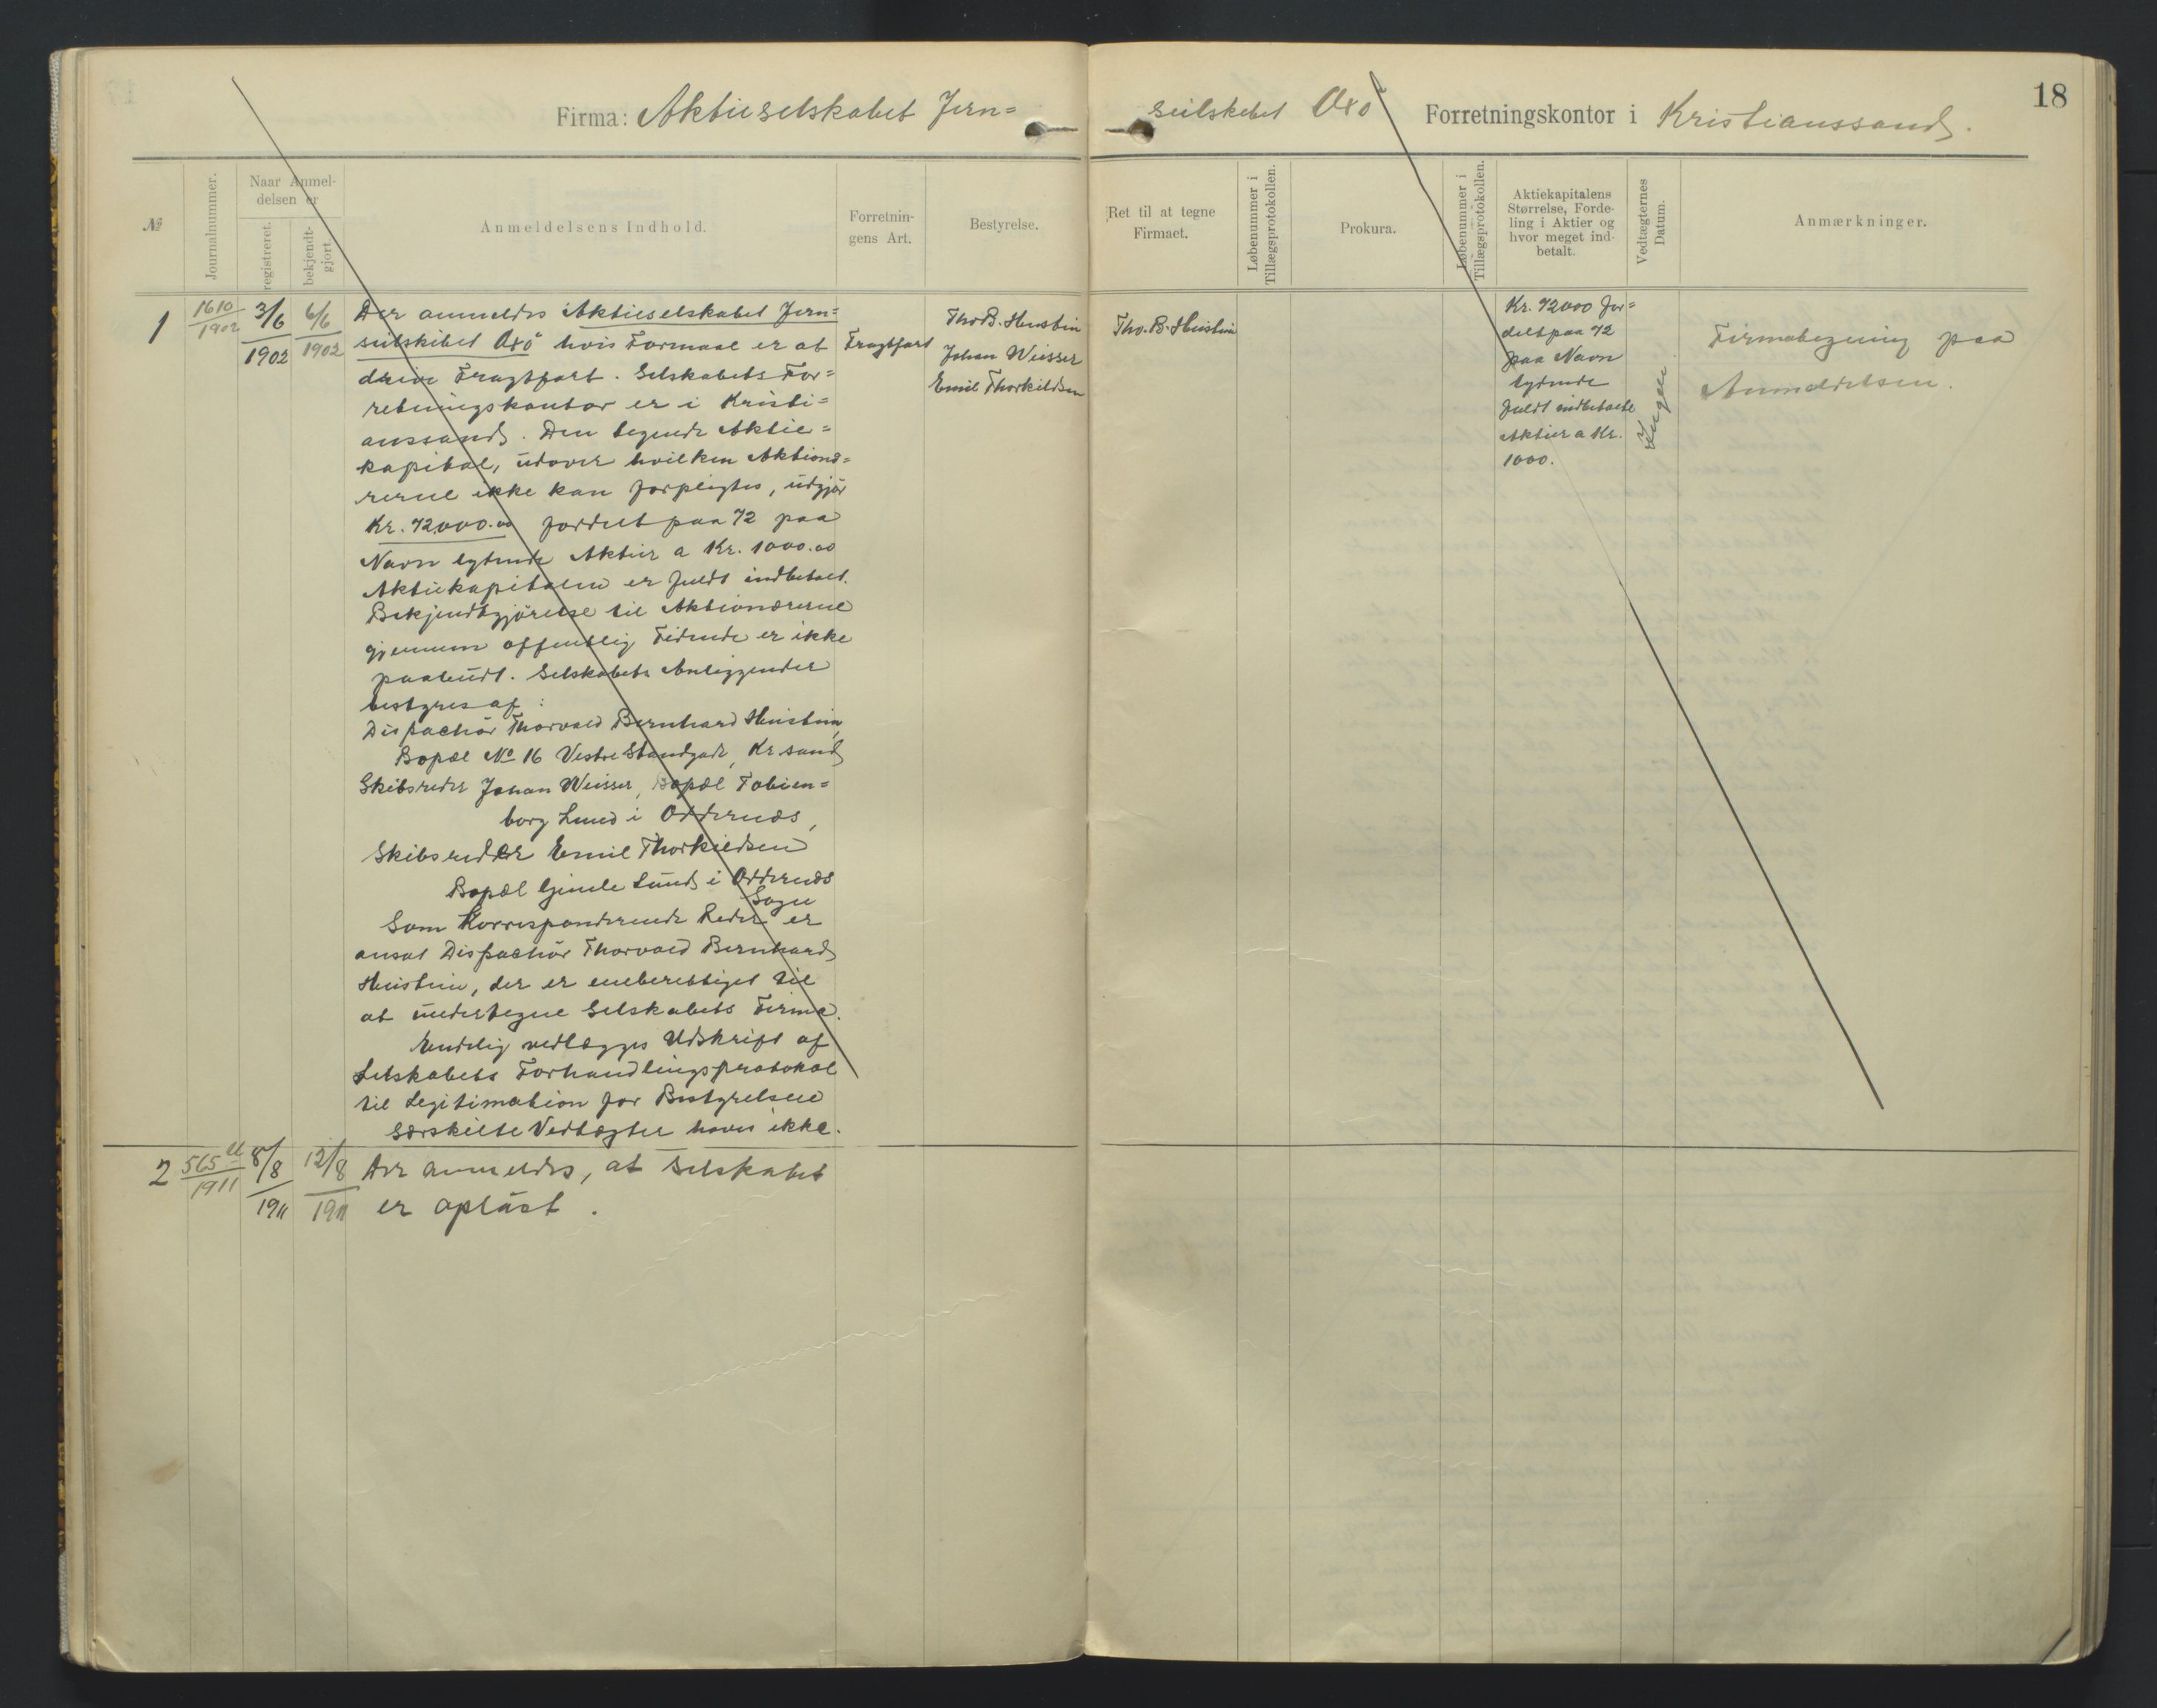 18
Firma: Aktieselskabet Jern=
seilskibet Oxö Forretningskontor i Kristianssand.
№
Journalnummer.
Naar Anmel-
delsen er
registreret.
bekjendt-
gjort.
Anmeldelsens Indhold.
Forretnin-
gens Art.
Bestyrelse.
Ret til at tegne
Firmaet.
Løbenummer i
Tillægsprotokollen.
Prokura.
Løbenummer i
Tillægsprotokollen.
Aktiekapitalens
Størrelse, Forde-
ling i Aktier og
hvor meget ind-
betalt.
Vedtægternes
Datum.
Anmærkninger.
1
1610
1902
3/6
1902
6/6
1902
Der anmeldes Aktieselskabet Jern=
seilskibet Oxö hvis Formaal er at
drive Fragtfart. Selskabets For=
retningskontor er i Kristi=
anssand. Den tegnede Aktie=
kapital, udover hvilken Aktionæ=
rerne ikke kan forpligtes, udgjör
Kr. 72000.00 fordelt paa 72 paa
Navn lydende Aktier a Kr. 1000.00
Aktiekapitalen er fuldt indbetalt.
Bekjendtgjörelse til Aktionærerne
gjennem offentlig Tidende er ikke
paabudt. Selskabets Anliggender
bestyres af:
Dispachör Thorvald Bernhard Heistein,
Bopæl No 16 Vestre Strandgade, Kr sand
Skibsreder Johan Weisser, Bopæl Tobien=
borg Lund i Oddernæs,
Skibsreder Emil Thorkildsen
Bopæl Gimle Lund i Oddernæs
Sogn
Som Korresponderende Reder er
ansat Dispachör Thorvald Bernhard
Heistein, der er eneberettiget til
at undertegne Selskabets Firma.
Endelig vedlægges Udskrift af
Selskabets Forhandlingsprotokol
til Legitimation for Bestyrelsen
Særskilte Vedtægter haves ikke.
Fragtfart
Tho B. Heistein
Johan Weisser
Emil Thorkildsen
Tho. B. Heistein
Kr. 72000 for=
delt paa 72
paa Navn
lydende
fuldt indbetalte
Aktier a Kr.
1000.
Ingen
Firmategning paa
Anmeldelsen.
2
565
1911
8/8
1911
12/8
1911
Der anmeldes, at Selskabet
er oplöst.